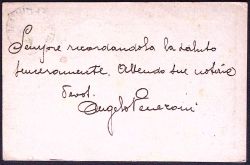 Sempre ricordandola la saluto
sinceramente. Attendo sue notizie
Devot.
Angelo